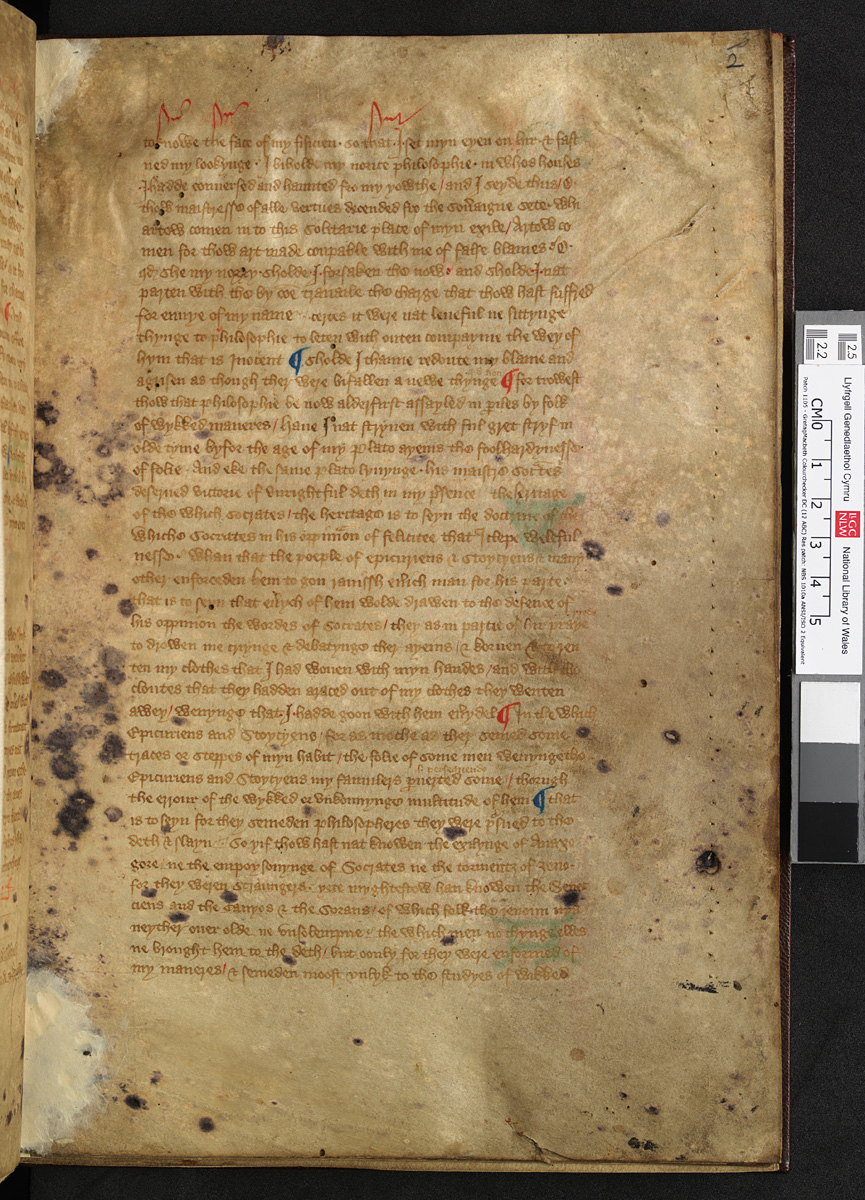 2
to knowe the face of my fisicien · so that · I · set myn eyen on hir · & fast
ned my lookynge · I biholde my norice philosophie · in whos houses
I hadde conuersed and haunted fro my yowthe / and I seyde thus / O ·
thow maistresse of alle vertues descended fro the sou̅aigne sete · whi
artow comen in to this solitarie place of myn exile / Artow co
men for thow art made coupable with me of false blames · O ·
qd she my nory · sholde · I · forsaken the now · and sholde · I · nat
parten with the by coe trauaile the charge that thow hast suffred
for enuye of my name · certes it were nat leueful ne sittynge
thynge to philosophie to leten with outen compaignie the wey of
hym that is Inocent ¶ sholde I thanne redoute my blame and
agrisen as though ther were bifallen a newe thynge ¶ for trowest
thow that philosophie be now alderfirst assayled in piles by folk
of wykked maneres / haue I nat stryuen with ful gret stryf in
olde tyme byfor the age of my plato ayenis the foolhardynesse
of folie · And eke the same plato lyuynge · his maistre socrtes
deserued victorie of vnrightful deth in my psence · the heritage
of the which socrates / the heritage is to seyn the doctrine of the
whiche Socrates in his oppinion of felicitee that I clepe weleful
nesse · whan that the poeple of epicuriens & stoyciens & many
other enforceden hem to gon rauissh euerich man for his parte ·
that is to seyn that euerych of hem wolde drawen to the defence of
his oppinion the wordes of socrates / they as in partie of hir praye
to drowen me criynge & debatynge ther ayenis / & koruen & to ren
ten my clothes that I had wouen with myn handes / and with tho
cloutes that they hadden araced out of my clothes they wenten
awey / wenynge that · I · hadde goon with hem euery del ¶ In the which
Epicuriens and Stoyciens / for as moche as ther semed some
traces or steppes of myn habit / the folie of some men wenynge tho
Epicuriens and Stoyciens my familers puerted some / thorugh
the errour of the wykked or vnkonnynge multitude of hem ¶ that
is to seyn for they semeden philosopheres they were psued to the
deth & slayn · So yif thow hast nat knowen the exilynge of Anaxa
gore · ne the enpoysonynge of Socrates ne the tormentz of zeno ·
for they weren straungers · yete myghtestow han knowen the Sene
ciens and the Canyos & the Sorans / of which folk they renoun nys
neyther ouer olde ne vnsolempne · the which men no thynge elles
ne brought hem to the deth / but oonly for they were enformed of
my maneres / & semeden moost vnlyk to the studyes of wikked
2.2
2.5
CM 0 1 2 3 4 5
Llyfrgell Genedlaethol Cymru
LlGC
NLW
National Library of Wales